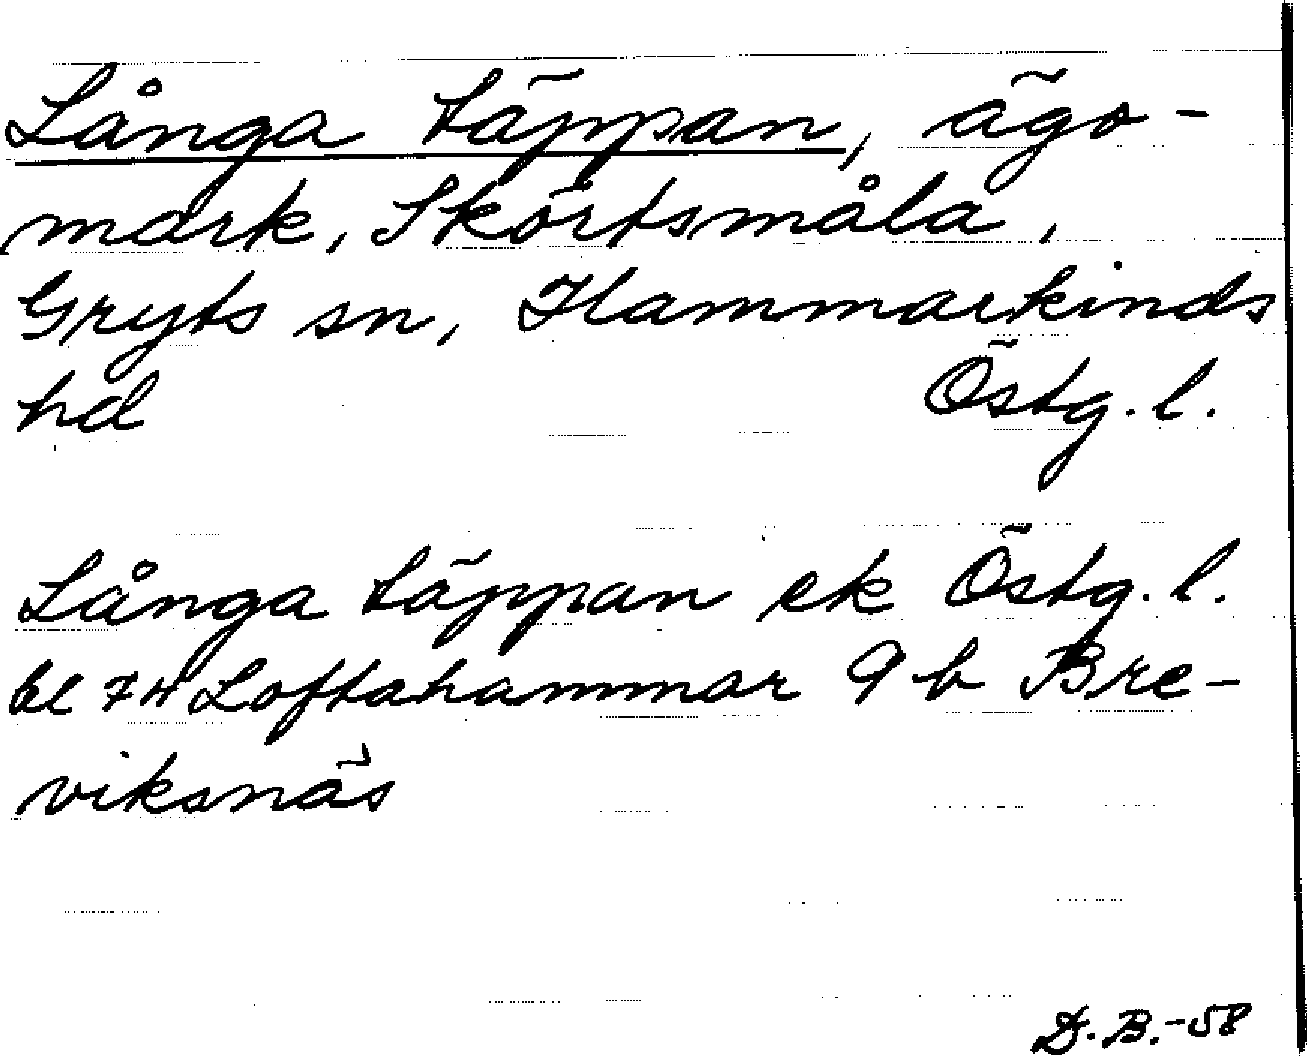 Långa täppan, ägo-
mark, Skörtsmåla,
Gryts sn, Hammarkinds
hd Östg. l.
Långa täppan ek Östg. l.
bl 74 Loftahammar 9 b Bre-
viksnäs
D. B. -58